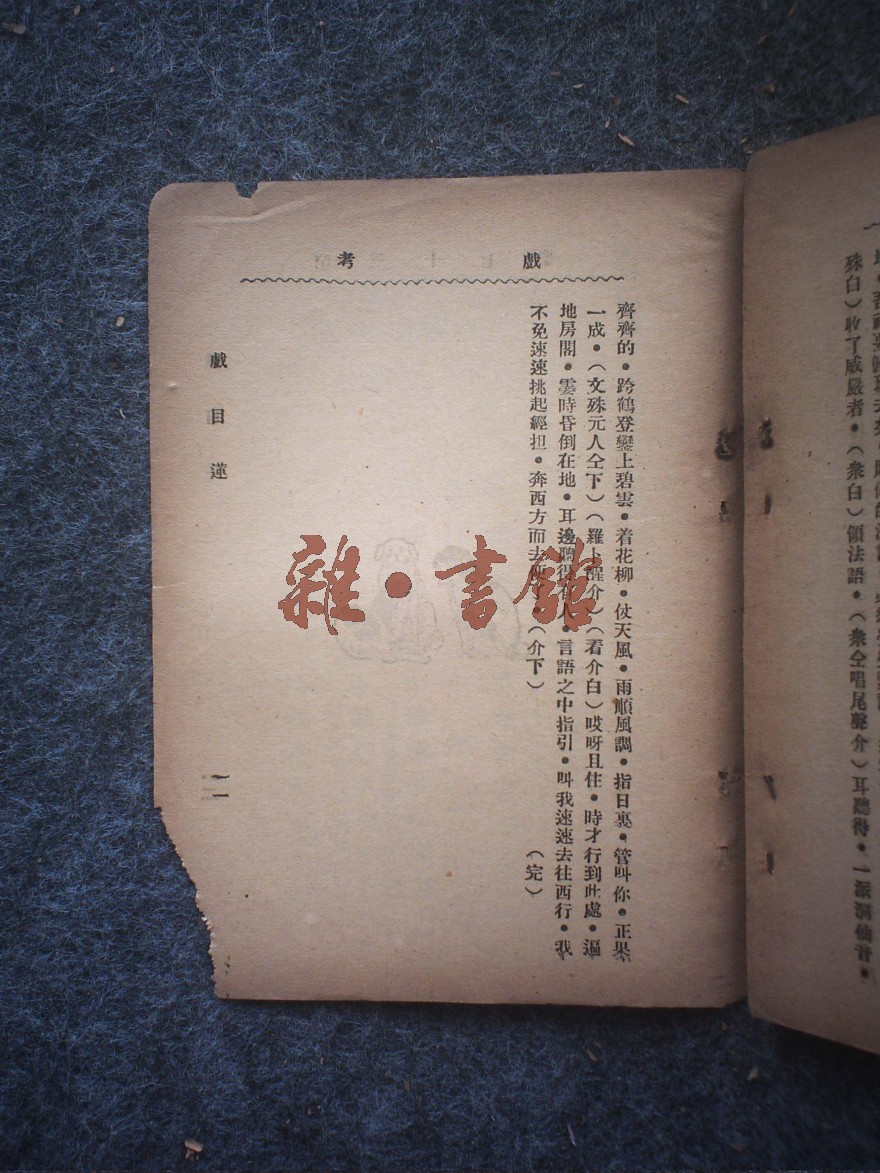 殊白）收了威嚴者•（衆白）領法語•（衆仝唱尾聲介）耳聽得•一派洞仙音•
戲考
齊齊的•跨鶴登鑾上碧雲•着花柳•仗天風•雨順風調•指日裏•管叫你•正果
一成•（文殊元人仝下）（羅卜醒介）（看介白）哎呀且住•時才行到此處•逼
地房閣•霎時昏倒在地•耳邊聽得有人•言語之中指引•叫我速速去往西行•我
不免速速挑起經担•奔西方而去•（介下）（完）
戲目蓮
一一
雜•書館